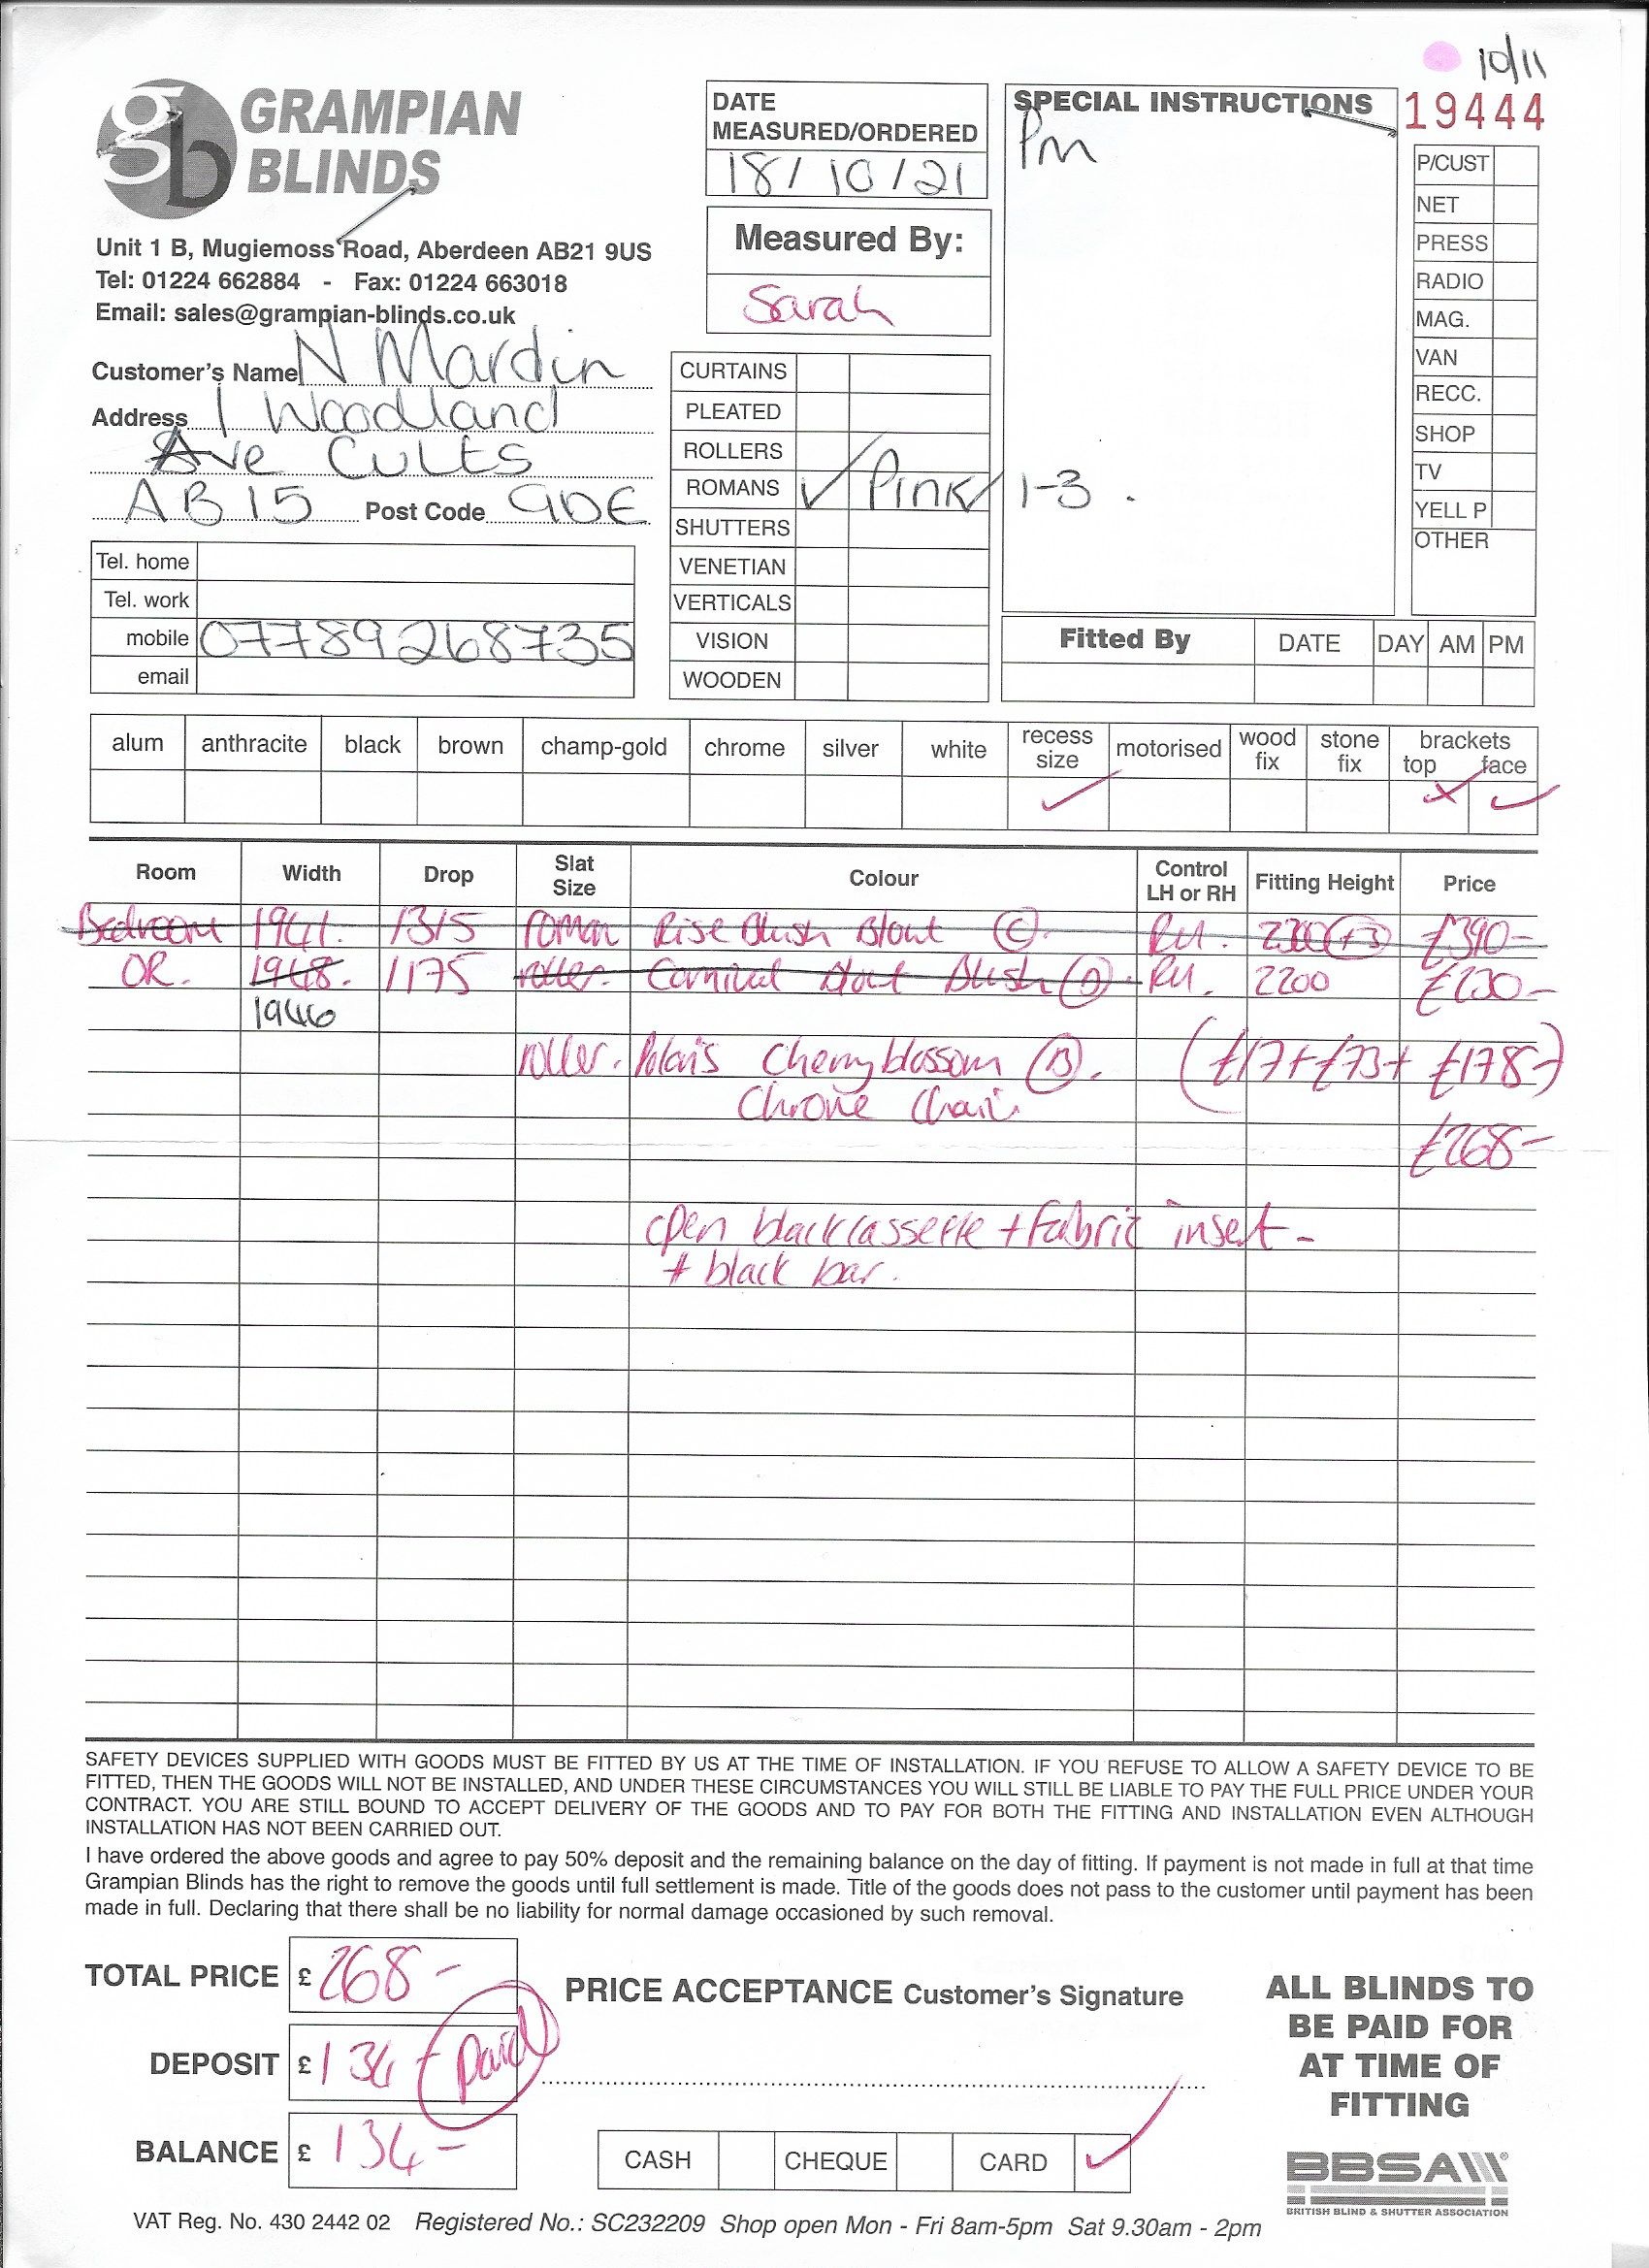 10/11
GRAMPIAN
BLINDS
Unit 1 B, Mugiemoss Road, Aberdeen AB21 9US
Tel: 01224 662884 - Fax: 01224 663018
Email: sales@grampian-blinds.co.uk
DATE
MEASURED/ORDERED
18/10/21
Measured By:
Sarah
SPECIAL INSTRUCTIONS
Pm
1-3.
19444
P/CUST
NET
PRESS
RADIO
MAG.
VAN
RECC.
SHOP
TV
YELL P
OTHER
Customer's Name N Mardin
Address 1 Woodland
Ave Cults
AB15 Post Code 9DE
Tel. home
Tel. work
mobile 07789268735
email
CURTAINS
PLEATED
ROLLERS
ROMANS ✓ Pink
SHUTTERS
VENETIAN
VERTICALS
VISION
WOODEN
Fitted By DATE DAY AM PM
alum anthracite black brown champ-gold chrome silver white recess size motorised wood fix stone fix brackets top face
Room Width Drop Slat Size Colour Control LH or RH Fitting Height Price
Bedroom 1941. 1315 roman Rise Blush Blout (C). RH. 2300 (+3) £390-
OR. 1948. 1175 roller. Carnival Blout Blush RH. 2200 £230-
1946
roller. Polaris Cherryblossom (B). (£17+£73+ £178-)
Chrome Chain
£268-
open black cassette + fabric insert -
+ black bar.
SAFETY DEVICES SUPPLIED WITH GOODS MUST BE FITTED BY US AT THE TIME OF INSTALLATION. IF YOU REFUSE TO ALLOW A SAFETY DEVICE TO BE
FITTED, THEN THE GOODS WILL NOT BE INSTALLED, AND UNDER THESE CIRCUMSTANCES YOU WILL STILL BE LIABLE TO PAY THE FULL PRICE UNDER YOUR
CONTRACT. YOU ARE STILL BOUND TO ACCEPT DELIVERY OF THE GOODS AND TO PAY FOR BOTH THE FITTING AND INSTALLATION EVEN ALTHOUGH
INSTALLATION HAS NOT BEEN CARRIED OUT.
I have ordered the above goods and agree to pay 50% deposit and the remaining balance on the day of fitting. If payment is not made in full at that time
Grampian Blinds has the right to remove the goods until full settlement is made. Title of the goods does not pass to the customer until payment has been
made in full. Declaring that there shall be no liability for normal damage occasioned by such removal.
TOTAL PRICE £ 268-
DEPOSIT £ 134- paid
BALANCE £ 134-
PRICE ACCEPTANCE Customer's Signature
CASH CHEQUE CARD ✓
ALL BLINDS TO
BE PAID FOR
AT TIME OF
FITTING
BBSA
BRITISH BLIND & SHUTTER ASSOCIATION
VAT Reg. No. 430 2442 02 Registered No.: SC232209 Shop open Mon - Fri 8am-5pm Sat 9.30am - 2pm